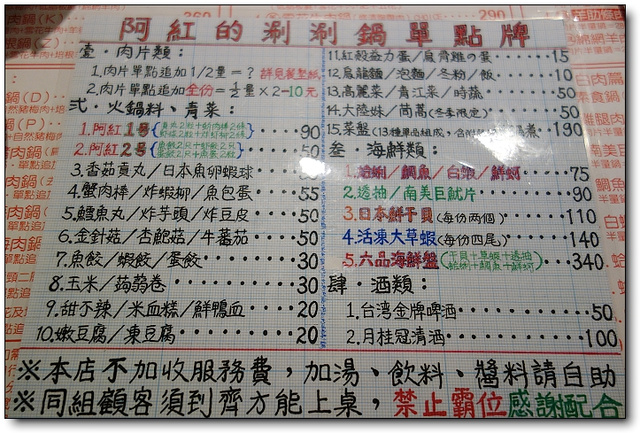 阿紅的涮涮鍋單點牌
壹.肉片類：
1.肉片單點追加1/2量=？詳見餐墊紙
2.肉片單點追加全份=½量×2-10元
貳.火鍋料、青菜：
1.阿紅1號 90
2.阿紅2號 50
3.香菇貢丸/日本魚卵蝦球 50
4.蟹肉棒/炸蝦柳/魚包蛋 55
5.鱈魚丸/炸芋頭/炸豆皮 50
6.金針菇/杏鮑菇/牛蕃茄 50
7.魚餃/蝦餃/蛋餃 30
8.玉米/蒟蒻卷 30
9.甜不辣/米血糕/鮮鴨血 20
10.嫩豆腐/凍豆腐 20
11.紅殼益力蛋/烏骨雞の蛋 15
12.烏龍麵/泡麵/冬粉/飯 10
13.高麗菜/青江菜/時蔬 50
14.大陸妹/茼蒿(冬季限定) 50
15.菜盤(13種 190
叁.海鮮類：
1.蛤蜊/鯛魚/白蝦/鮮蚵 75
2.透抽/南美巨魷片 90
3.日本鮮干貝(每份兩個) 110
4.活凍大草蝦(每份四尾) 140
5.六品海鮮盤(干貝+草蝦+透抽 蛤蜊+鯛魚+鮮蚵) 340
肆.酒類：
1.台湾金牌啤酒 50
2.月桂冠清酒 100
※本店不加收服務費，加湯、飲料、醬料請自助
※同組顧客須到齊方能上桌，禁止霸位感謝配合